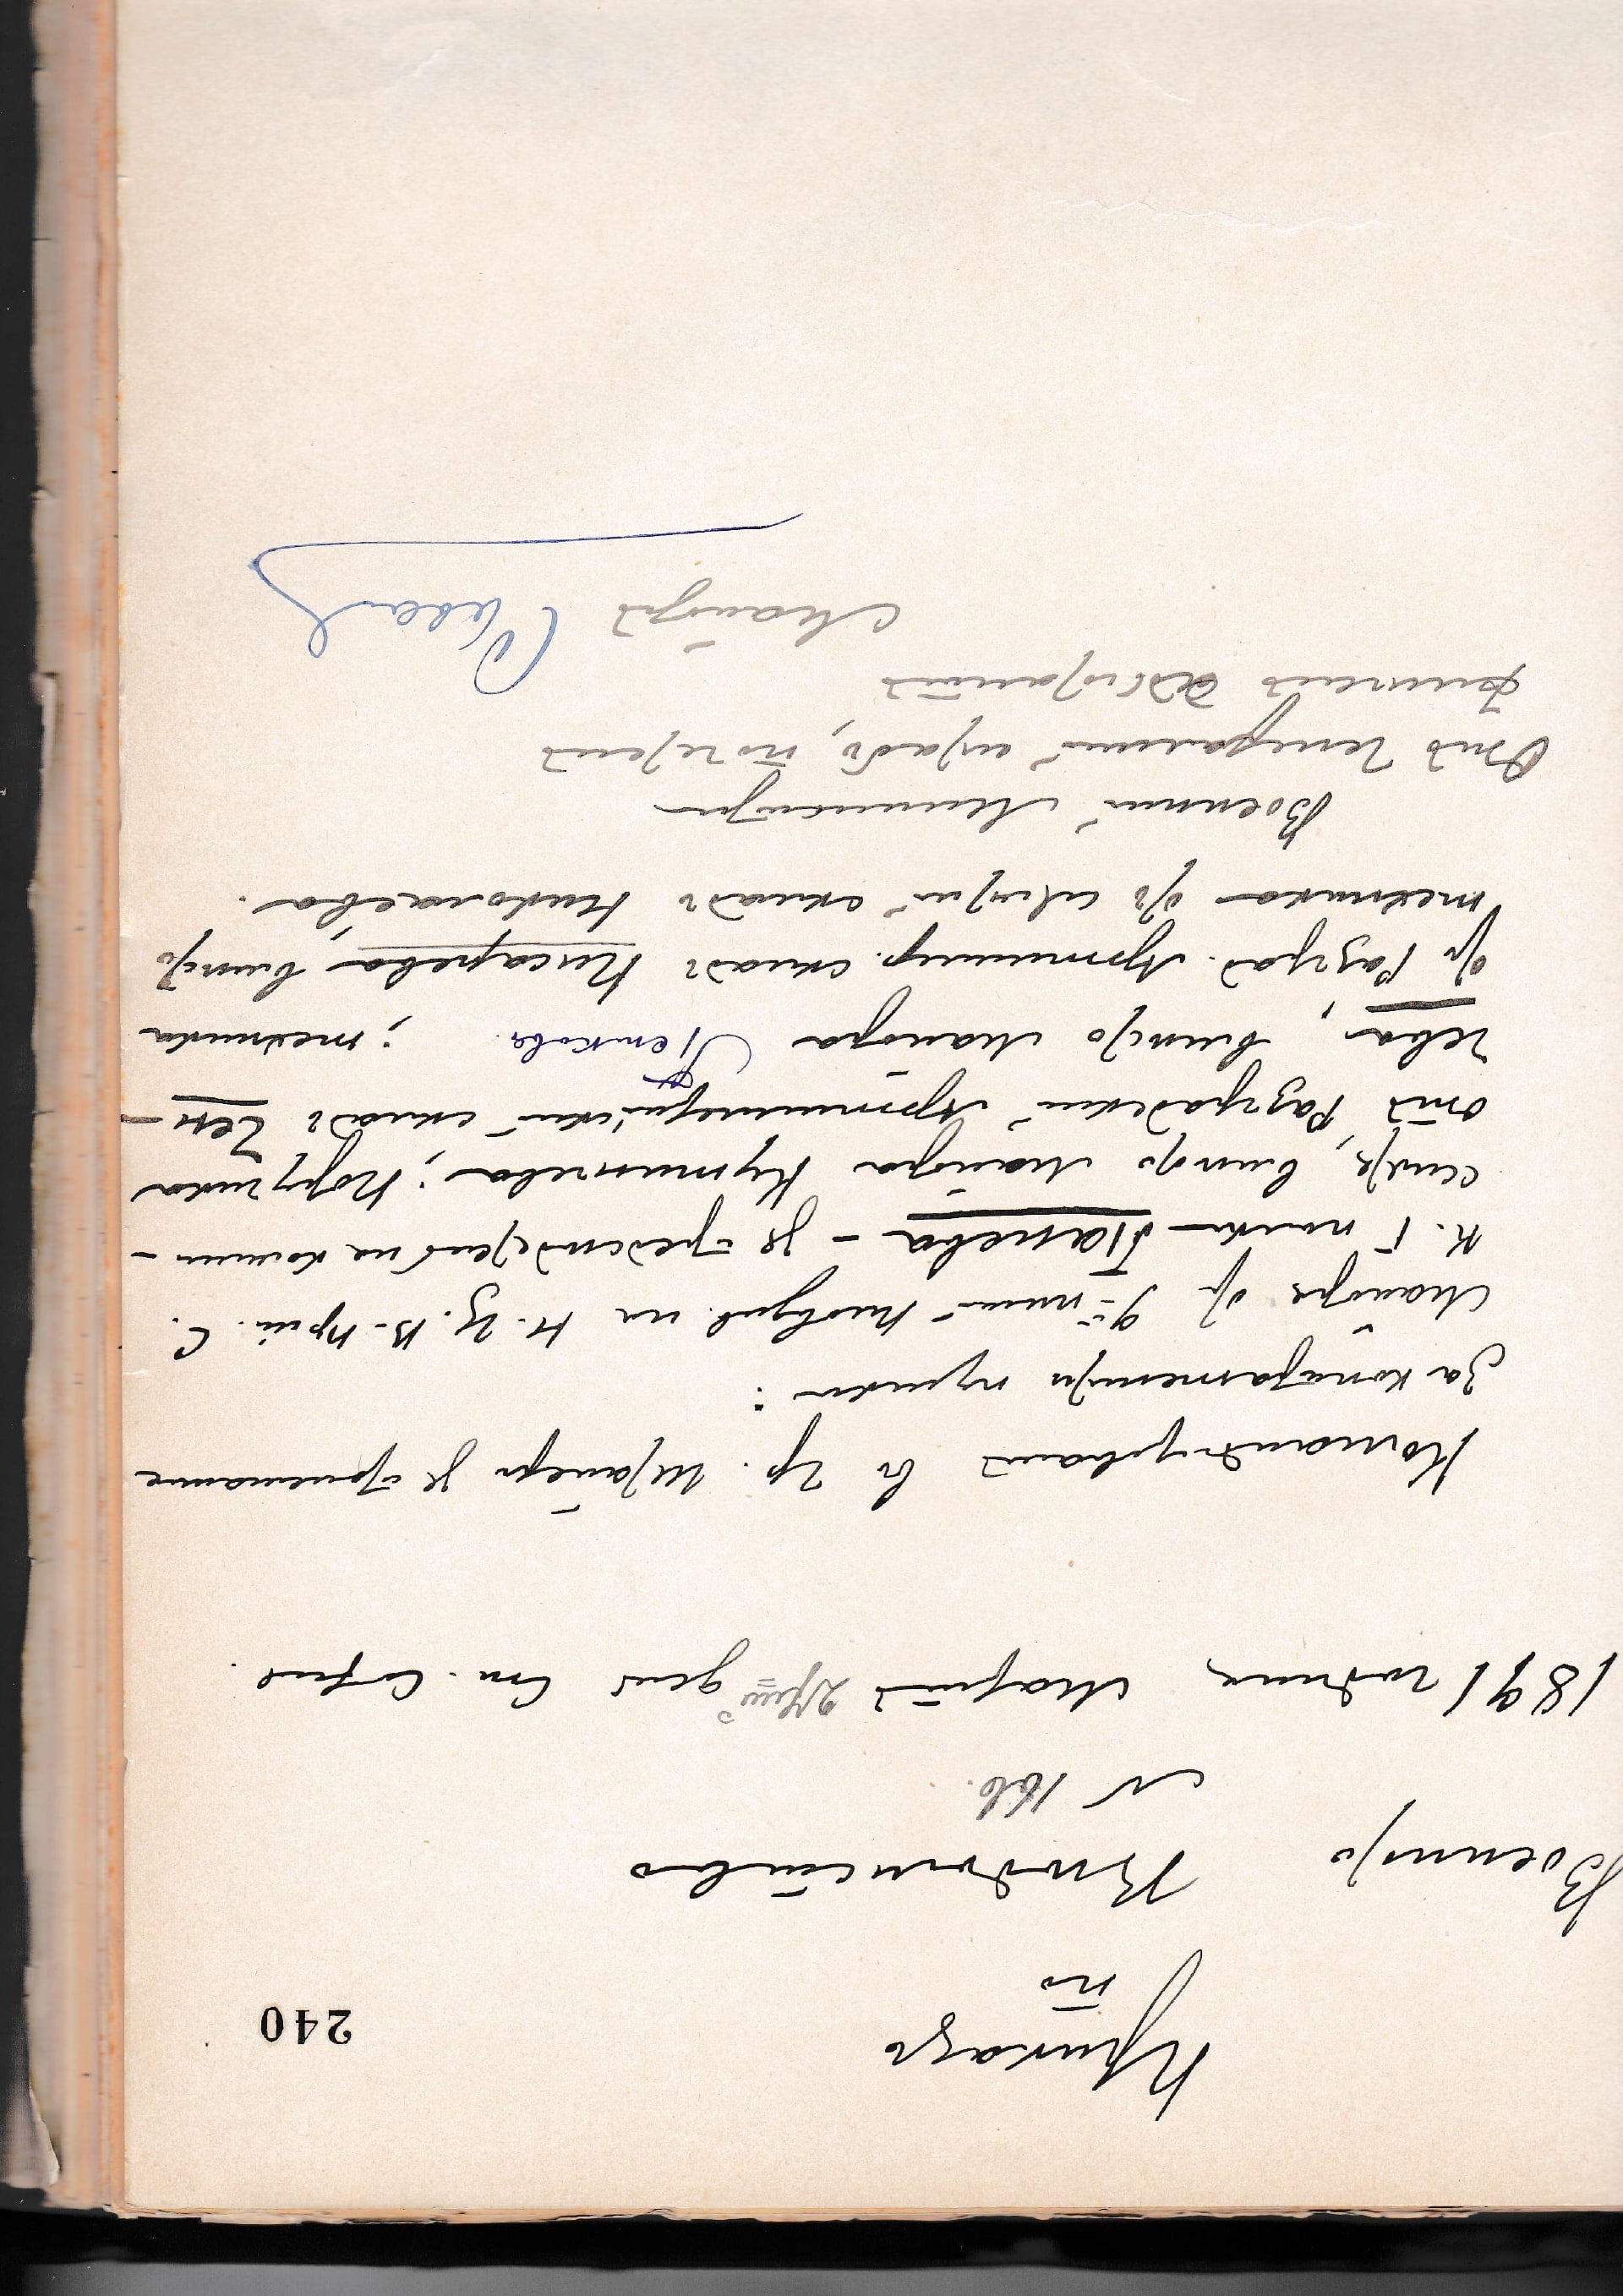 Приказъ
240
по
Военното Вѣдомство
N 166.
1891 година Мартъ 27ий день Ст. София.
Командировамъ въ гр. Щайеръ за приемание
законтрактенитѣ пушки:
Майора отъ 9й пѣший Пловдив. на Н. Ц. В. Прин. С.
К. Г полкъ Панева – за председатель на комми-
сията, вмѣсто майора Кутинчева; Поручика
отъ Разградский Артиллерийский складъ Чен-
чева, вмѣсто майора Петкова ; техника
отъ Разград. Артиллер. складъ Писарева, вмѣсто
техника отъ складъ Николаева.
Военний Министръ
Отъ Генералний щабъ, почетенъ
Флигель Адютантъ
Майоръ Савовъ